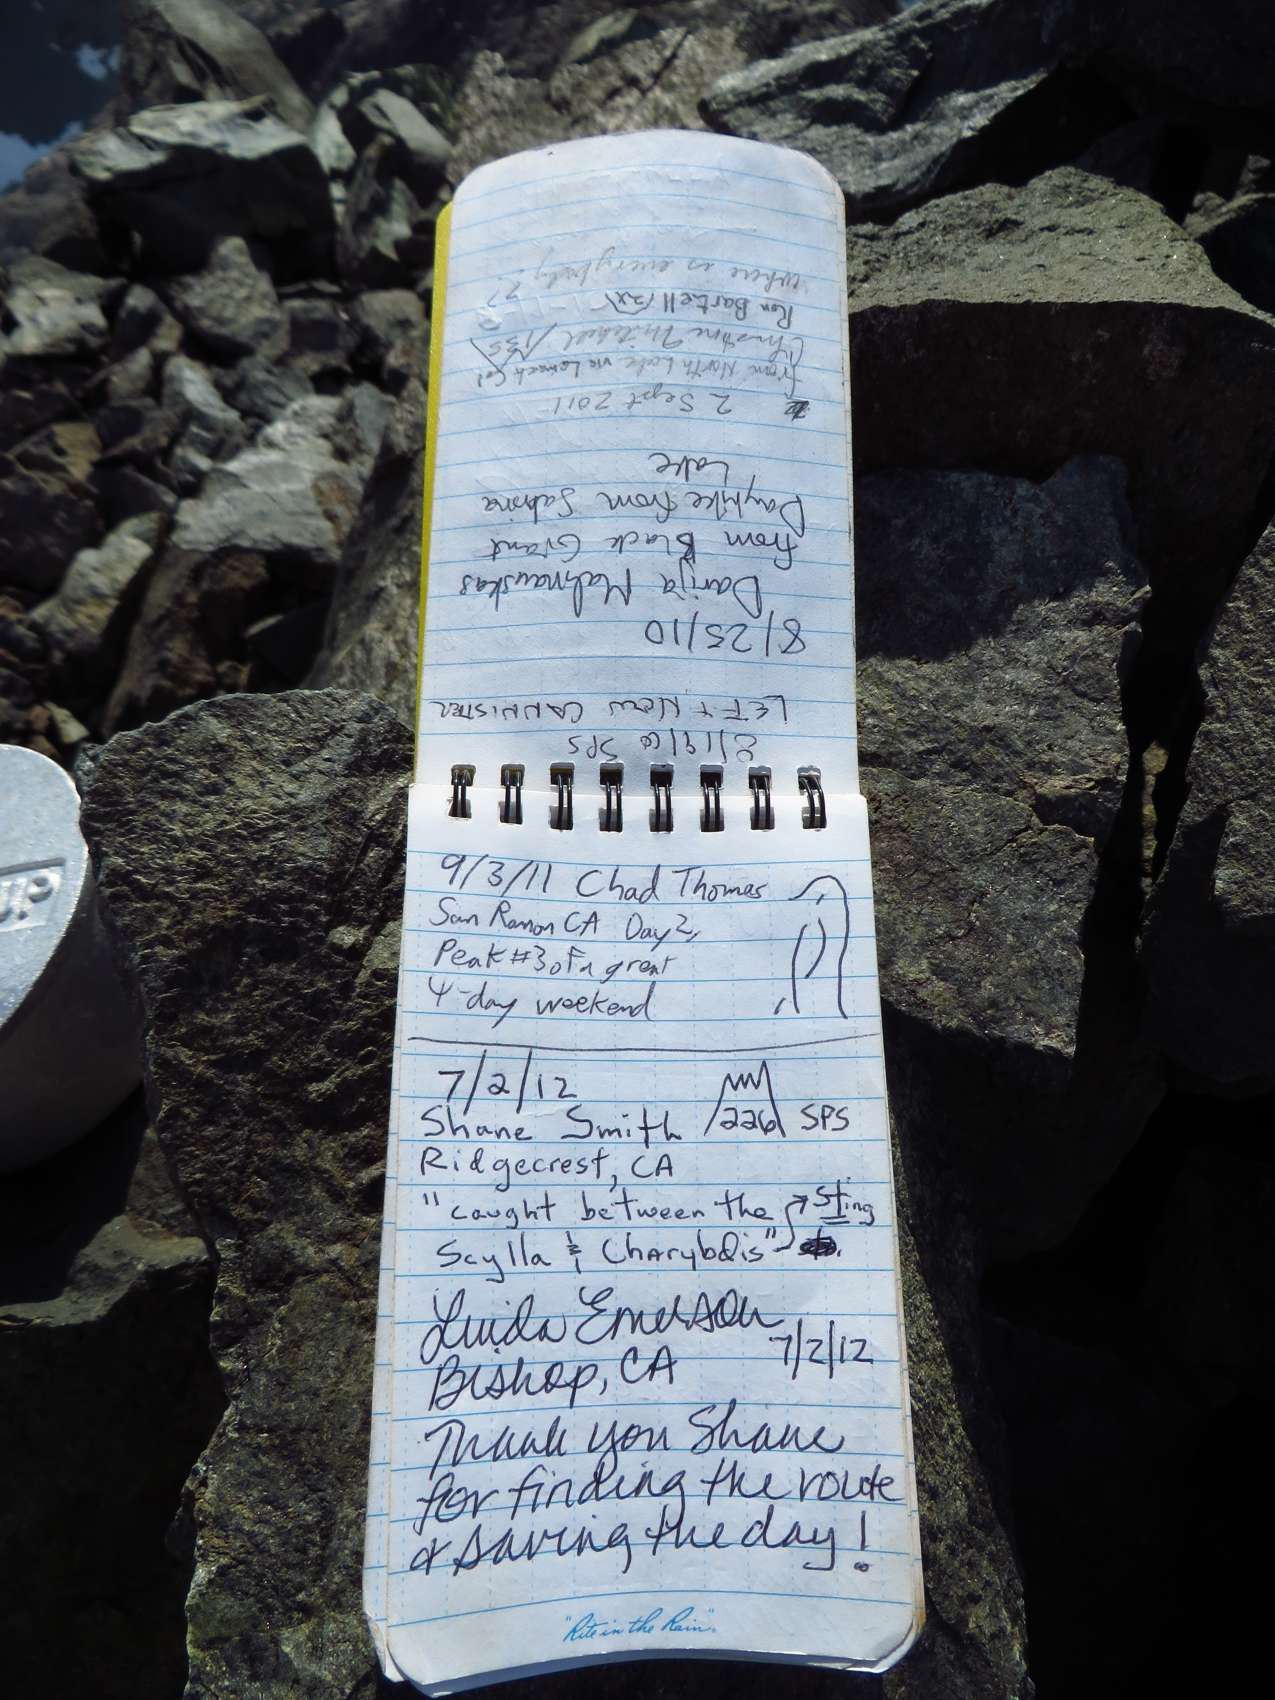 8/19/10 SPS
LEFT NEW CANNISTER
8/25/10
Darija
from Black Giant
Dayhike from Sabrina
Lake
2 Sept 2011
from North Lake via Lamarck Col
Christine Mitchel /135\
Ron Bartell
Where is everybody??
9/3/11 Chad Thomas
San Ramon CA Day 2,
Peak #3 of a great
4-day weekend
7/2/12
Shane Smith 226 SPS
Ridgecrest, CA
"caught between the
Scylla & Charybdis" Sting
Luida Emerson
Bishop, CA 7/2/12
Thank you Shane
for finding the route
& saving the day!
"Rite in the Rain"